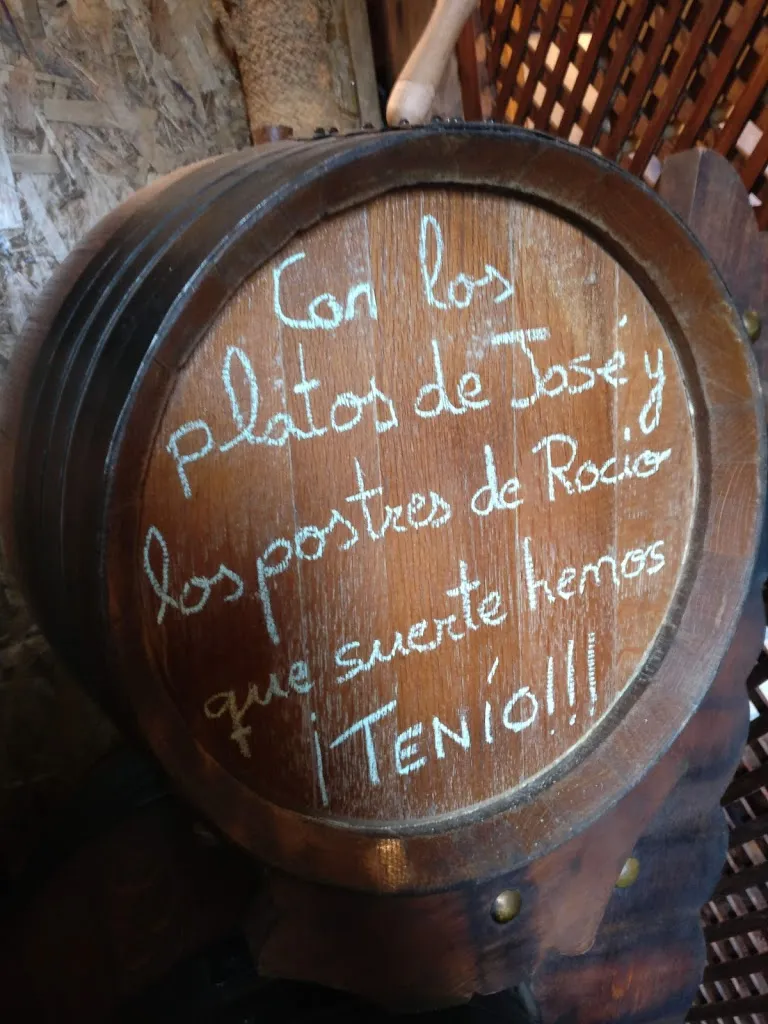 Con los
platos de José y
los postres de Rocio
que suerte hemos
¡TENÍO!!!